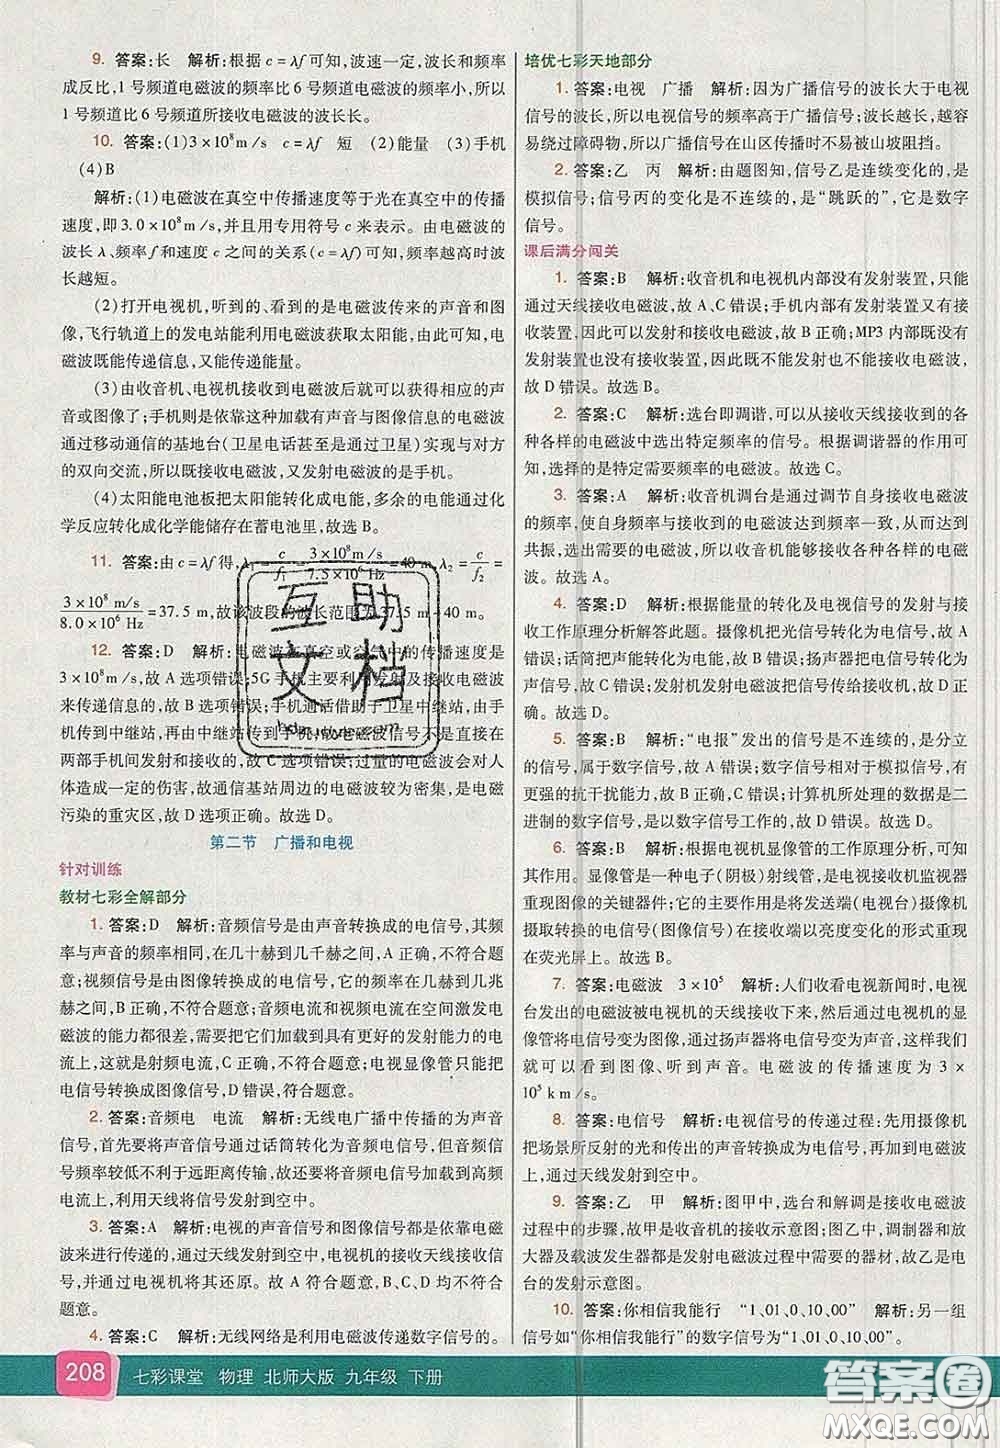 9. 答案:长　解析:根据 c = λf 可知,波速一定,波长和频率
成反比,1 号频道电磁波的频率比 6 号频道电磁波的频率小,所以
1 号频道比 6 号频道所接收电磁波的波长长。
10. 答案:(1)3×10⁸ m/s　c = λf　短　(2)能量　(3)手机
(4)B
解析:(1)电磁波在真空中传播速度等于光在真空中的传播
速度,即 3.0×10⁸ m/s,并且用专用符号 c 表示。由电磁波的
波长 λ、频率 f 和速度 c 之间的关系(c = λf)可知,频率越高时波长
越短。
(2)打开电视机,听到的、看到的是电磁波传来的声音和图
像,飞行轨道上的发电站能利用电磁波获取太阳能,由此可知,电
磁波既能传递信息,又能传递能量。
(3)由收音机、电视机接收到电磁波后就可以获得相应的声
音或图像了;手机则是依靠这种加载有声音与图像信息的电磁波
通过移动通信的基地台(卫星电话甚至是通过卫星)实现与对方
的双向交流,所以既接收电磁波,又发射电磁波的是手机。
(4)太阳能电池板把太阳能转化成电能,多余的电能通过化
学反应转化成化学能储存在蓄电池里,故选 B。
11. 答案:由 c = λf 得,λ₁ = c/f₁ = 3×10⁸ m/s / 7.5×10⁶ Hz = 40 m,λ₂ = c/f₂ =
3×10⁸ m/s / 8.0×10⁶ Hz = 37.5 m,故该波段的波长范围为 37.5 m~40 m。
12. 答案:D　解析:电磁波在真空或空气中的传播速度是
3×10⁸ m/s,故 A 选项错误;5G 手机主要利用无线电波或电磁波
来传递信息的,故 B 选项错误;手机通话借助于卫星中继站,由手
机传到中继站,再由中继站传到手机,故电磁波不会直接在
两部手机间发射和接收的,故 C 选项错误;过量的电磁波会对人
体造成一定的伤害,故通信基站周围电磁波较为密集,是电磁
污染的重灾区,故 D 选项正确。故选 D。
第二节　广播和电视
针对训练
教材七彩全解部分
1. 答案:D　解析:音频信号是由声音转换成的电信号,其频
率与声音的频率相同,在几十赫到几千赫之间,A 正确,不符合题
意;视频信号是由图像转换成的电信号,它的频率在几赫到几兆
赫之间,B 正确,不符合题意;音频电流和视频电流在空间激发电
磁波的能力都很差,需要把它们加载到具有更好的发射能力的电
流上,这就是射频电流,C 正确,不符合题意;电视显像管只能把
电信号转换成图像信号,D 错误,符合题意。
2. 答案:音频电　电流　解析:无线电广播中传播的为声音
信号,首先要将声音信号通过话筒转化为音频电信号,但音频信
号频率较低不利于远距离传输,故还要将音频电信号加载到高频
电流上,利用天线将信号发射到空中。
3. 答案:A　解析:电视的声音信号和图像信号都是依靠电磁
波来进行传递的,通过天线发射到空中,电视机的接收天线接收信
号,并通过电视机将其还原。故 A 符合题意,B、C、D 均不符合
题意。
4. 答案:C　解析:无线网络是利用电磁波传递数字信号的。
培优七彩天地部分
1. 答案:电视　广播　解析:因为广播信号的波长大于电视
信号的波长,所以电视信号的频率高于广播信号;波长越长,越容
易绕过障碍物,所以广播信号在山区传播时不易被山坡阻挡。
2. 答案:乙　丙　解析:由题图知,信号乙是连续变化的,是
模拟信号;信号丙的变化是不连续的,是“跳跃的”,它是数字
信号。
课后满分闯关
1. 答案:B　解析:收音机和电视机内部没有发射装置,只能
通过天线接收电磁波,故 A、C 错误;手机内部有发射装置又有接
收装置,因此可以发射和接收电磁波,故 B 正确;MP3 内部既没有
发射装置也没有接收装置,因此既不能发射也不能接收电磁波,
故 D 错误。故选 B。
2. 答案:C　解析:选台即调谐,可以从接收天线接收到的各
种各样的电磁波中选出特定频率的信号。根据调谐器的作用可
知,选择的是特定需要频率的电磁波。故选 C。
3. 答案:A　解析:收音机调台是通过调节自身接收电磁波
的频率,使自身接收频率与外来的电磁波达到频率一致,从而达到
共振,选出该电台,所以收音机能够接收各种各样的电磁
波。故选 A。
4. 答案:D　解析:根据能量的转化及电视信号的发射与接
收工作原理分析解答此题。摄像机把光信号转化为电信号,
话筒把声能转化为电能,故 B 错误;扬声器把电信号转化为
声信号,故 C 错误;发射机发射电磁波把信号传给接收机,故 D
正确。故选 D。
5. 答案:B　解析:“电报”发出的信号是不连续的,是分立
的信号,属于数字信号,故 A 错误;数字信号相对于模拟信号,有
更强的抗干扰能力,故 B 正确、C 错误;计算机所处理的数据是二
进制的数字信号,是以数字信号工作的,故 D 错误。故选 B。
6. 答案:B　解析:根据电视机显像管的工作原理分析,可知
其作用。显像管是一种电子(阴极)射线管,是电视接收机监视器
重现图像的关键器件。它的主要作用是将发送端(电视台)摄像机
摄取转换的电信号(图像信号)在接收端以亮度变化的形式重现
在荧光屏上。故选 B。
7. 答案:电磁波　3×10⁵　解析:人们收看电视新闻时,电视
台发出的电磁波被电视机的天线接收下来,然后,电视机通过显
像管将电信号变为图像,通过扬声器将电信号变为声音,这样我
们就能看到图像、听到声音。电磁波在真空中传播速度为 3×
10⁵ km/s。
8. 答案:电信号　解析:电视信号的传递过程:先用摄像机
把场景所反射的光和传出的声音转换成为电信号,再加载到电磁
波上,通过天线发射到空中。
9. 答案:乙　甲　解析:图甲中,选台和解调是接收电磁波
过程中的步骤,故甲是收音机的接收示意图;图乙中,调制器和放
大器及载波发生器都是发射电磁波过程中需要的器材,故乙是电
台的发射示意图。
10. 答案:你相信我能行　“1,01,0,10,00”　解析:另一组
信号“你相信我能行”的数字信号为“1,01,0,10,00”。
208
七彩课堂　物理　北师大版　九年级　下册
互助
文档
答案圈
MXQE.COM